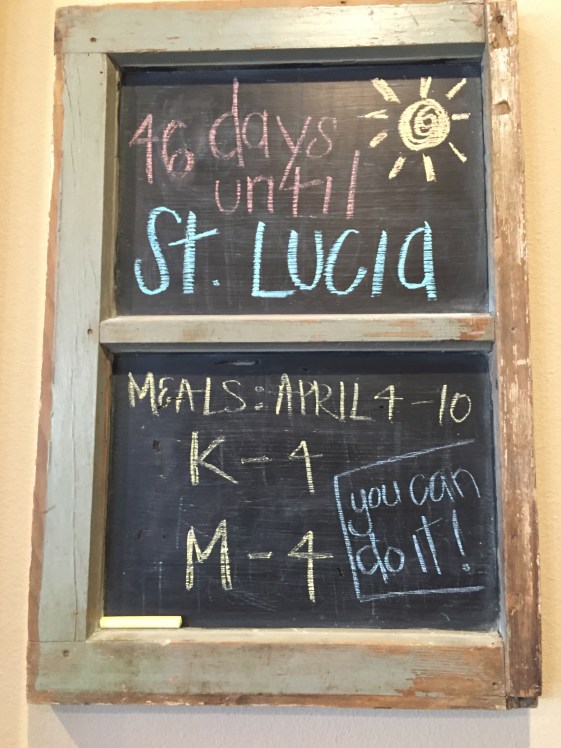 46 days
until
St. Lucia
MEALS: APRIL 4-10
K-4
M-4
you can
do it!